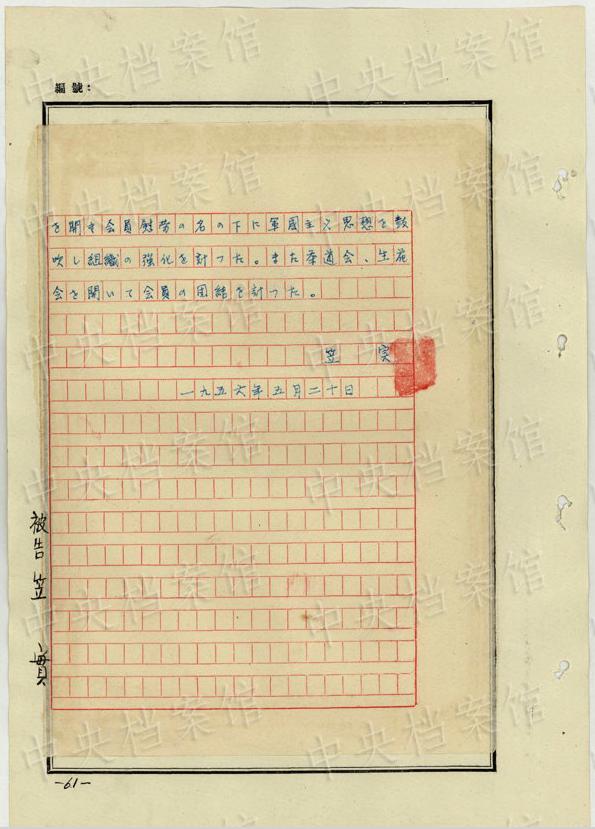 編號：
を開き会員慰労の名の下に軍国主义思想を鼓
吹し組織の強化を計つた。また茶道会、生花
会を開いて会員の団結を計つた。
笠 实
一九五六年五月二十日
被告 笠 實
—61—
中央档案馆